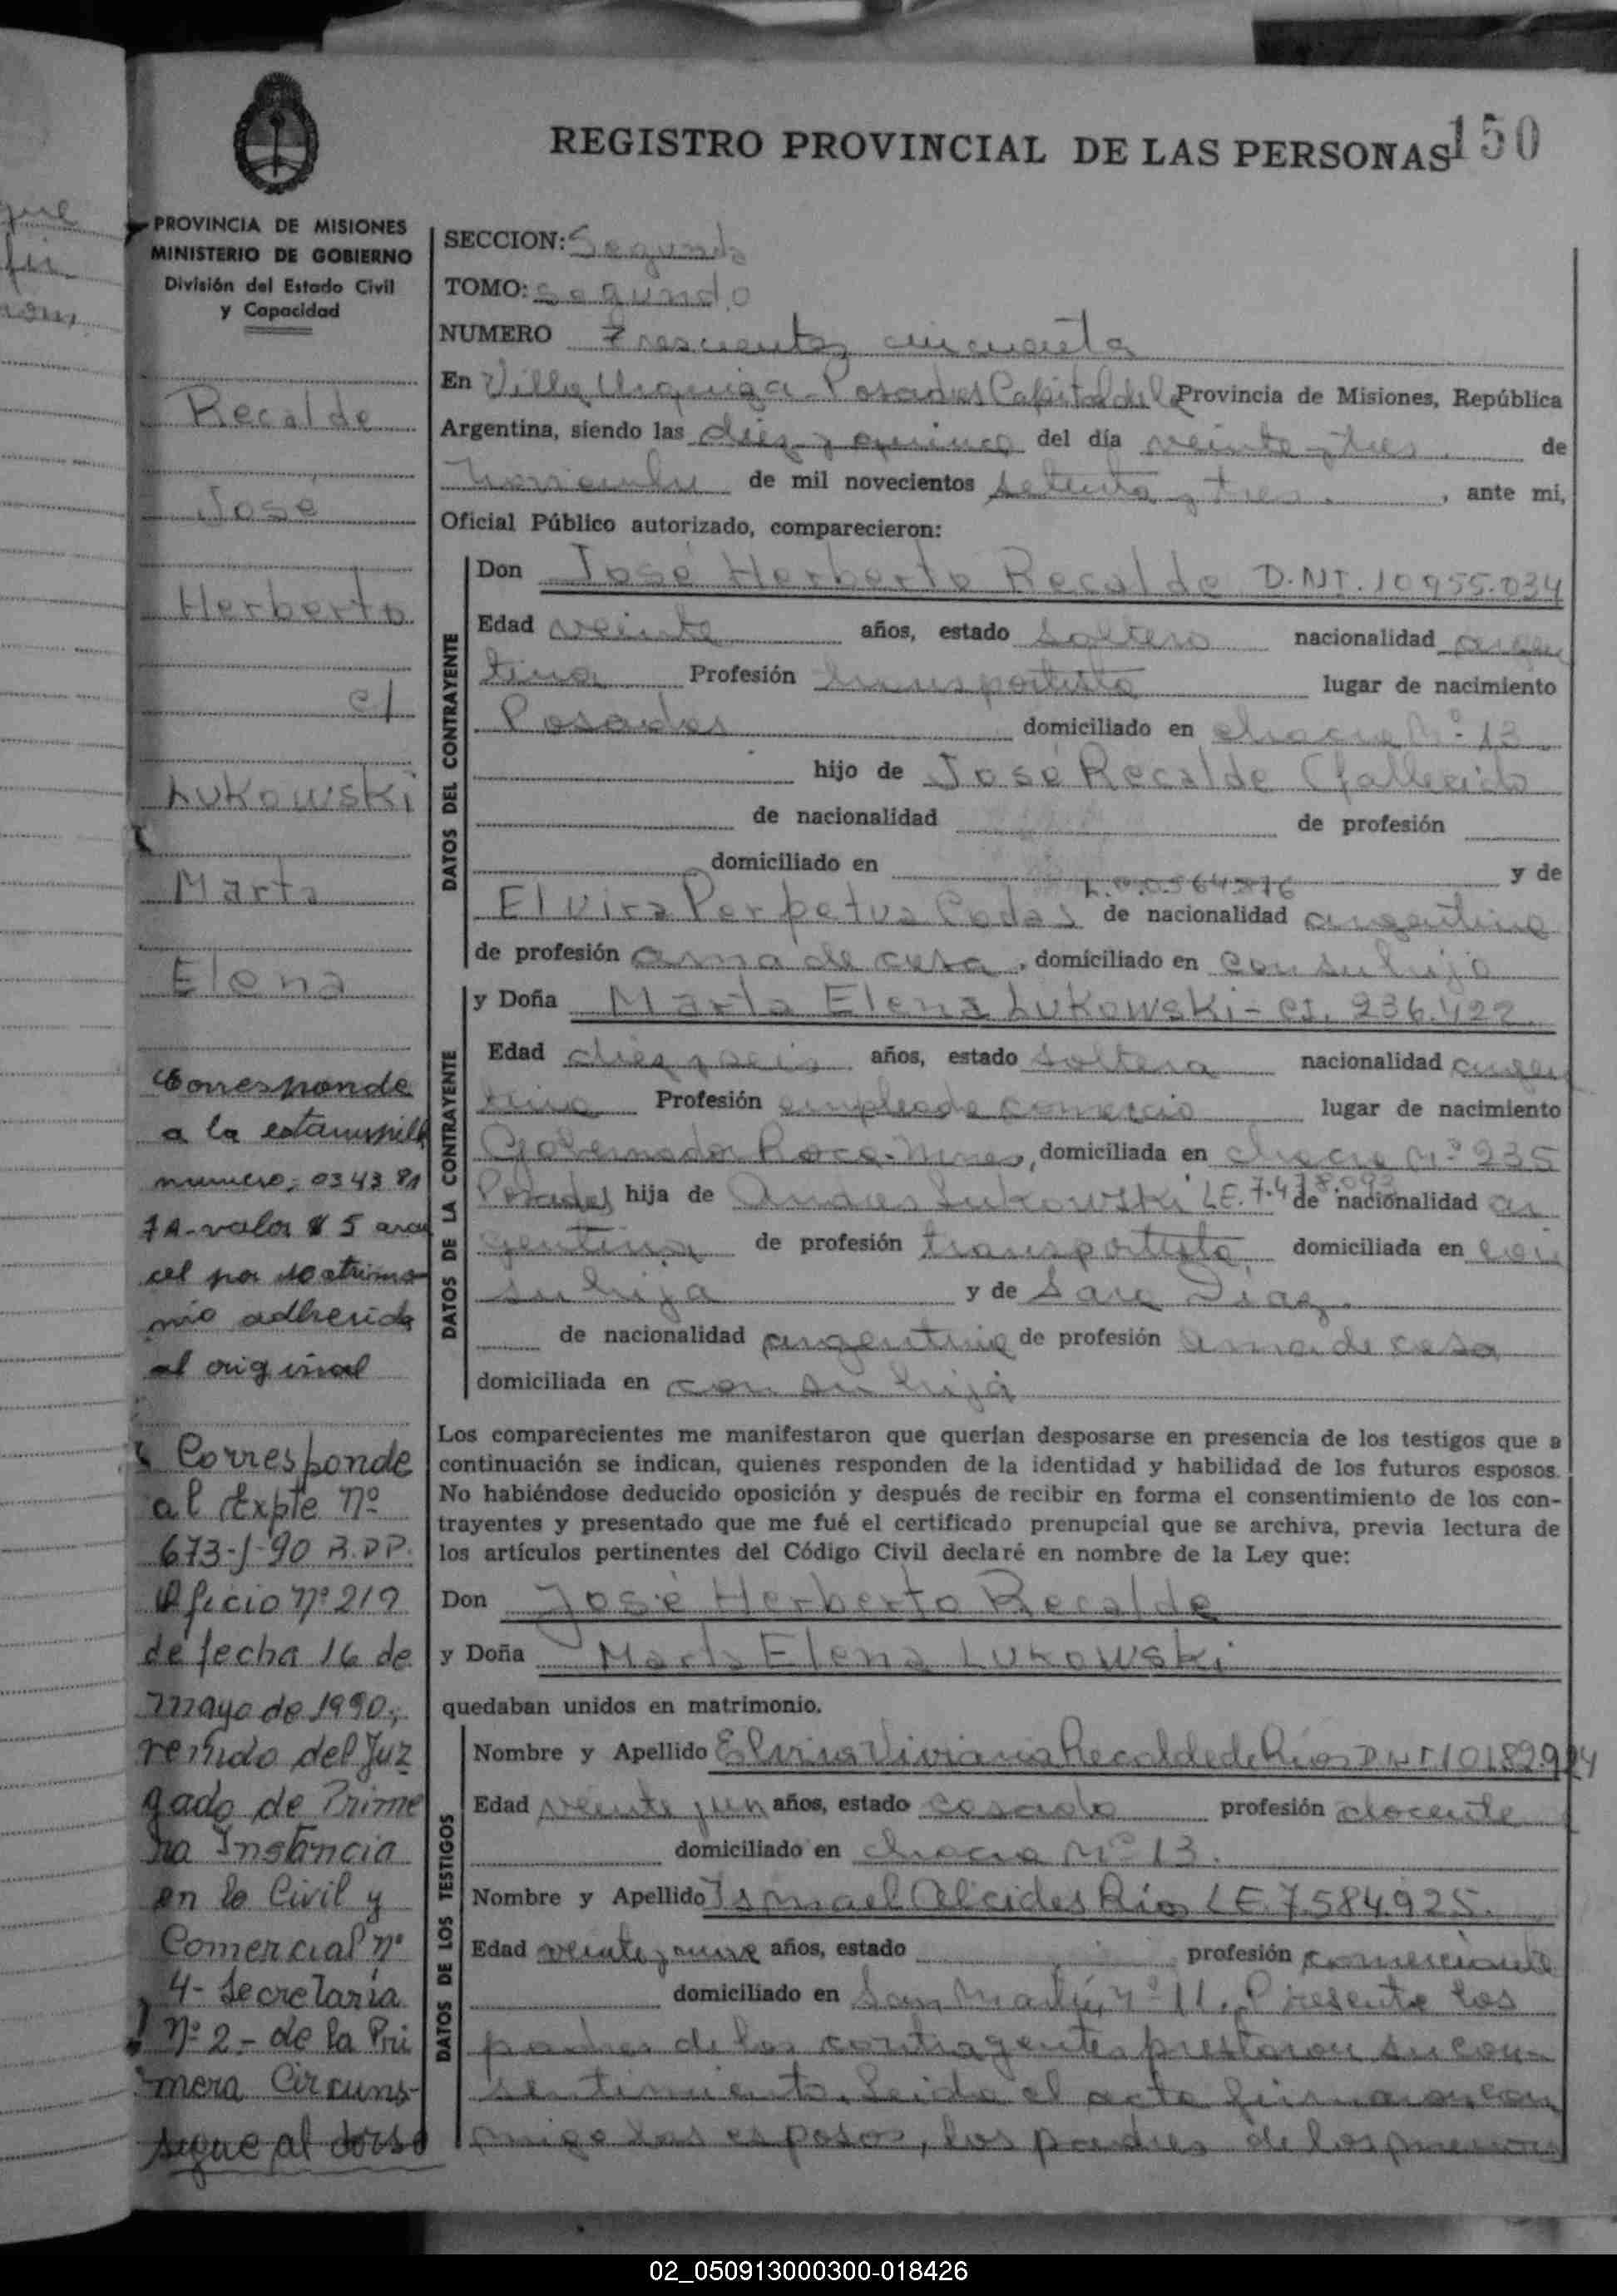 REGISTRO PROVINCIAL DE LAS PERSONAS 150
PROVINCIA DE MISIONES
MINISTERIO DE GOBIERNO
División del Estado Civil
y Capacidad
Recalde
José
Herberto
c/
Lukowski
Marta
Elena
Corresponde
a la estampilla
numero: 034381
7A-valor $ 5 aran
cel por Matrimo
nio adherida
al original
Corresponde
al Expte Nº
673-J-90 R.P.P.
Oficio Nº 219
de fecha 16 de
mayo de 1990,
venido del Juz
gado de Prime
ra Instancia
en lo Civil y
Comercial Nº
4- Secretaría
Nº 2.- de la Pri
mera Circuns-
sigue al dorso
SECCION: Segunda
TOMO: Segundo
NUMERO Trescientos cincuenta
En Villa Urquiza - Posadas Capital de la Provincia de Misiones, República
Argentina, siendo las diez y quince del día veinte y tres de
noviembre de mil novecientos setenta y tres, ante mi,
Oficial Público autorizado, comparecieron:
DATOS DEL CONTRAYENTE
Don José Herberto Recalde D.NI. 10955.034
Edad veinte años, estado soltero nacionalidad argen
tina Profesión transportista lugar de nacimiento
Posadas domiciliado en chacra Nº 13
hijo de José Recalde (fallecido
de nacionalidad de profesión
domiciliado en y de
Elvira Perpetua Codas de nacionalidad argentina
de profesión ama de casa, domiciliado en con su hijo
DATOS DE LA CONTRAYENTE
y Doña Marta Elena Lukowski - CI. 236.422
Edad diez y seis años, estado soltera nacionalidad argen
tina Profesión empleada comercio lugar de nacimiento
Gobernador Roca - Mnes, domiciliada en chacra Nº 235
Posadas hija de Andres Lukowski LE. 7.478.093 de nacionalidad ar
gentina de profesión transportista domiciliada en con
su hija y de Sara Diaz
de nacionalidad argentina de profesión ama de casa
domiciliada en con su hija
Los comparecientes me manifestaron que querían desposarse en presencia de los testigos que a
continuación se indican, quienes responden de la identidad y habilidad de los futuros esposos.
No habiéndose deducido oposición y después de recibir en forma el consentimiento de los con-
trayentes y presentado que me fué el certificado prenupcial que se archiva, previa lectura de
los artículos pertinentes del Código Civil declaré en nombre de la Ley que:
Don José Herberto Recalde
y Doña Marta Elena Lukowski
quedaban unidos en matrimonio.
DATOS DE LOS TESTIGOS
Nombre y Apellido Elvira Viviana Recalde de Rios D.N.I. 10182.924
Edad veinte y un años, estado casada profesión docente
domiciliado en chacra Nº 13.
Nombre y Apellido Ismael Alcides Rios LE. 7.584.925.
Edad veinte y nueve años, estado profesión comerciante
domiciliado en San Martín Nº 11. Presente los
padres de los contrayentes prestaron su con-
sentimiento. Leida el acta firmaron con
migo los esposos, los padres de los menores
02_050913000300-018426